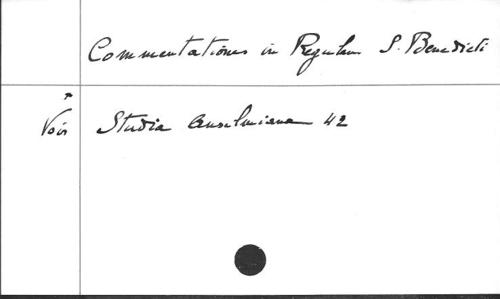 Commentationes in Regulam S. Benedicti
Voir Studia Anselmiana 42